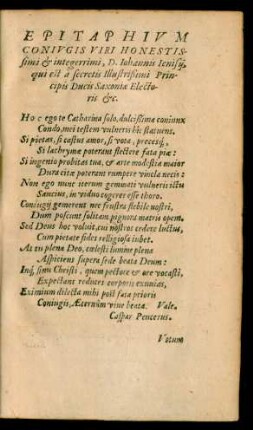 EPITAPHIVM
CONIVGIS VIRI HONESTIS-
simi & integerrimi, D. Iohannis Ienisij,
qui est à secretis Illustrissimi Prin-
cipis Ducis Saxoniæ Electo-
ris &c.
Hoc ego te Catharina solo, dulcissima coniunx
Condo, mei testem vulneris hîc statuens.
Si pietas, si castus amor, si vota, precesq́;
Si lachrymæ poterant flectere fata piæ:
Si ingenio probitas tua, & arte modestia maior
Dura citæ poterant rumpere vincla necis:
Non ego nunc iterum geminati vulneris ictu
Saucius, in viduo cogerer esse thoro.
Coniugij gemerent nec frustra flebile nostri,
Dum poscunt solitam pignora matris opem.
Sed Deus hoc voluit, cui nostros cedere luctus,
Cum pietate fides relligiosa iubet.
At tu plena Deo, cœlesti lumine plena
Aspiciens supera sede beata Deum:
Inq́; sinu Christi, quem pectore & ore vocasti,
Expectans reduces corporis exuuias,
Eximium dilecta mihi post fata prioris
Coniugis, Æternùm viue beata. Vale.
Caspar Peucerus.
Votum